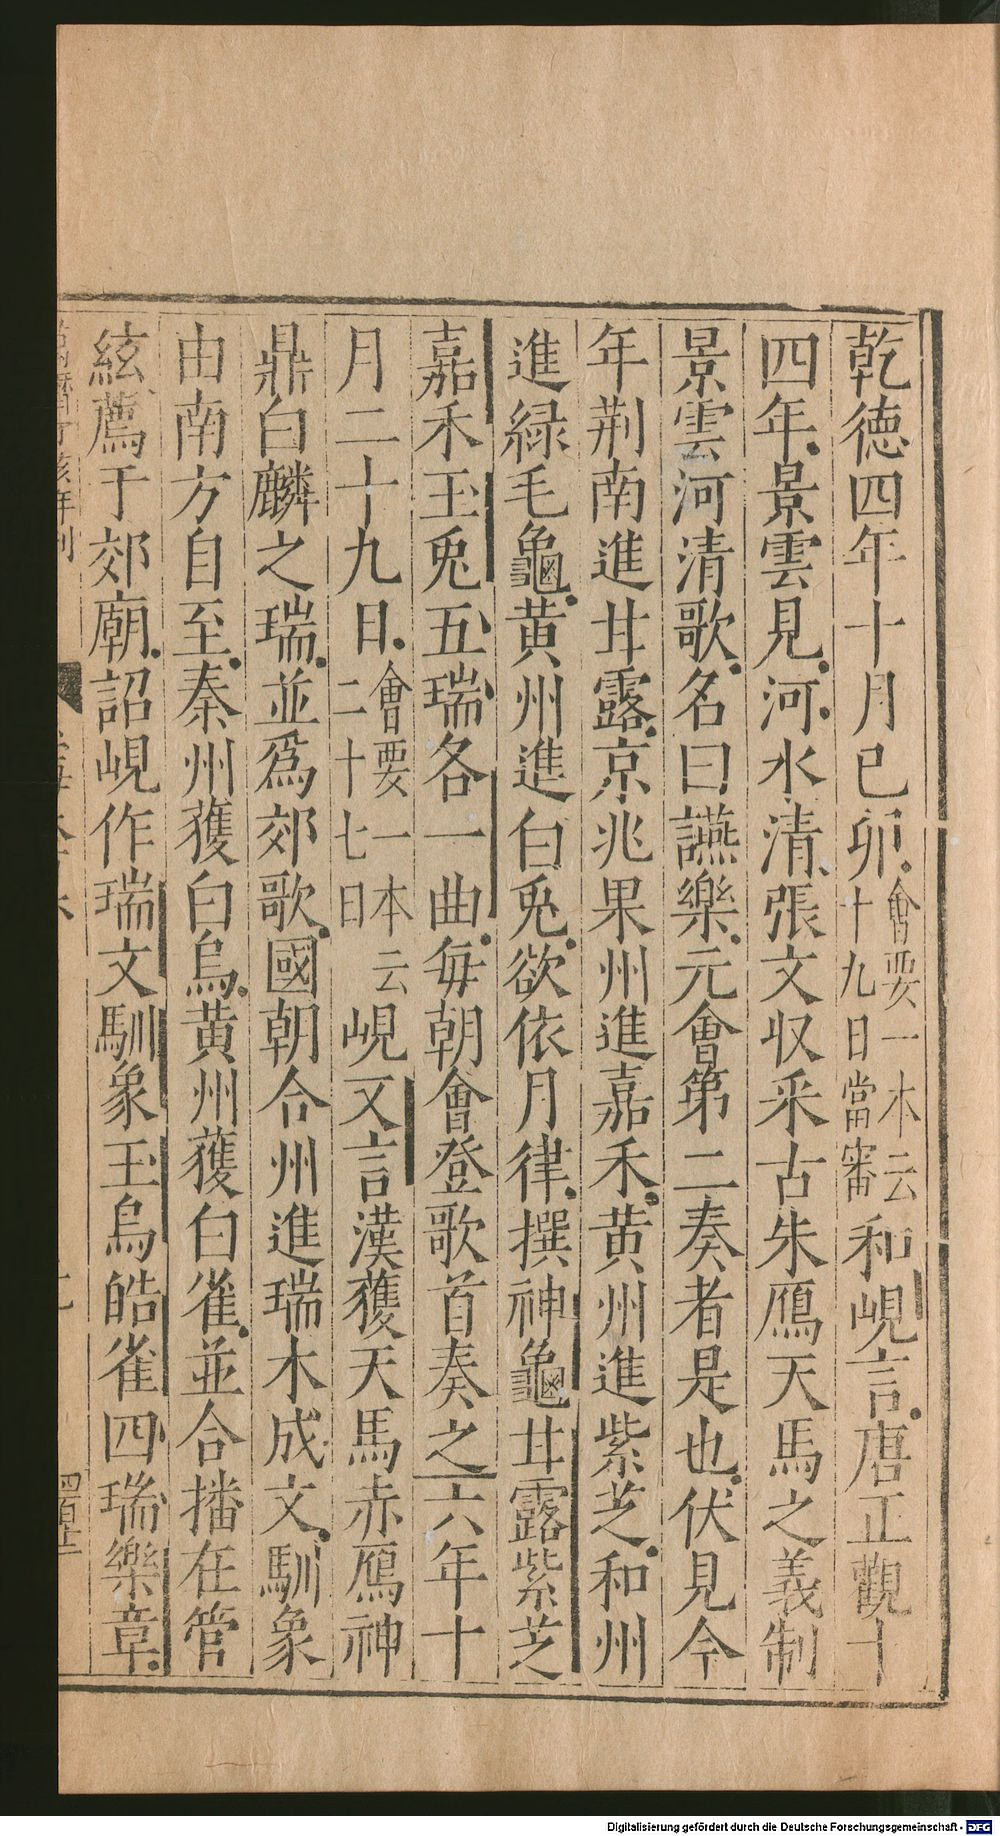 乾德四年十月已夘會要一本云十九日當審和峴言唐正觀十
四年景雲見河水清張文収采古朱鴈天馬之義制
景雲河清歌名曰讌樂元會第二奏者是也伏見今
年荆南進甘露京兆果州進嘉禾黄州進紫芝和州
進緑毛龜黄州進白兎欲依月律撰神龜甘露紫芝
嘉禾玉兎五瑞各一曲每朝會登歌首奏之六年十
月二十九日會要一本云二十七日峴又言漢獲天馬赤鴈神
鼎白麟之瑞並爲郊歌國朝合州進瑞木成文馴象
由南方自至秦州獲白烏黄州獲白雀並合播在管
絃薦于郊廟詔峴作瑞文馴象玉烏皓雀四瑞樂章
Digitalisierung gefördert durch die Deutsche Forschungsgemeinschaft - DFG